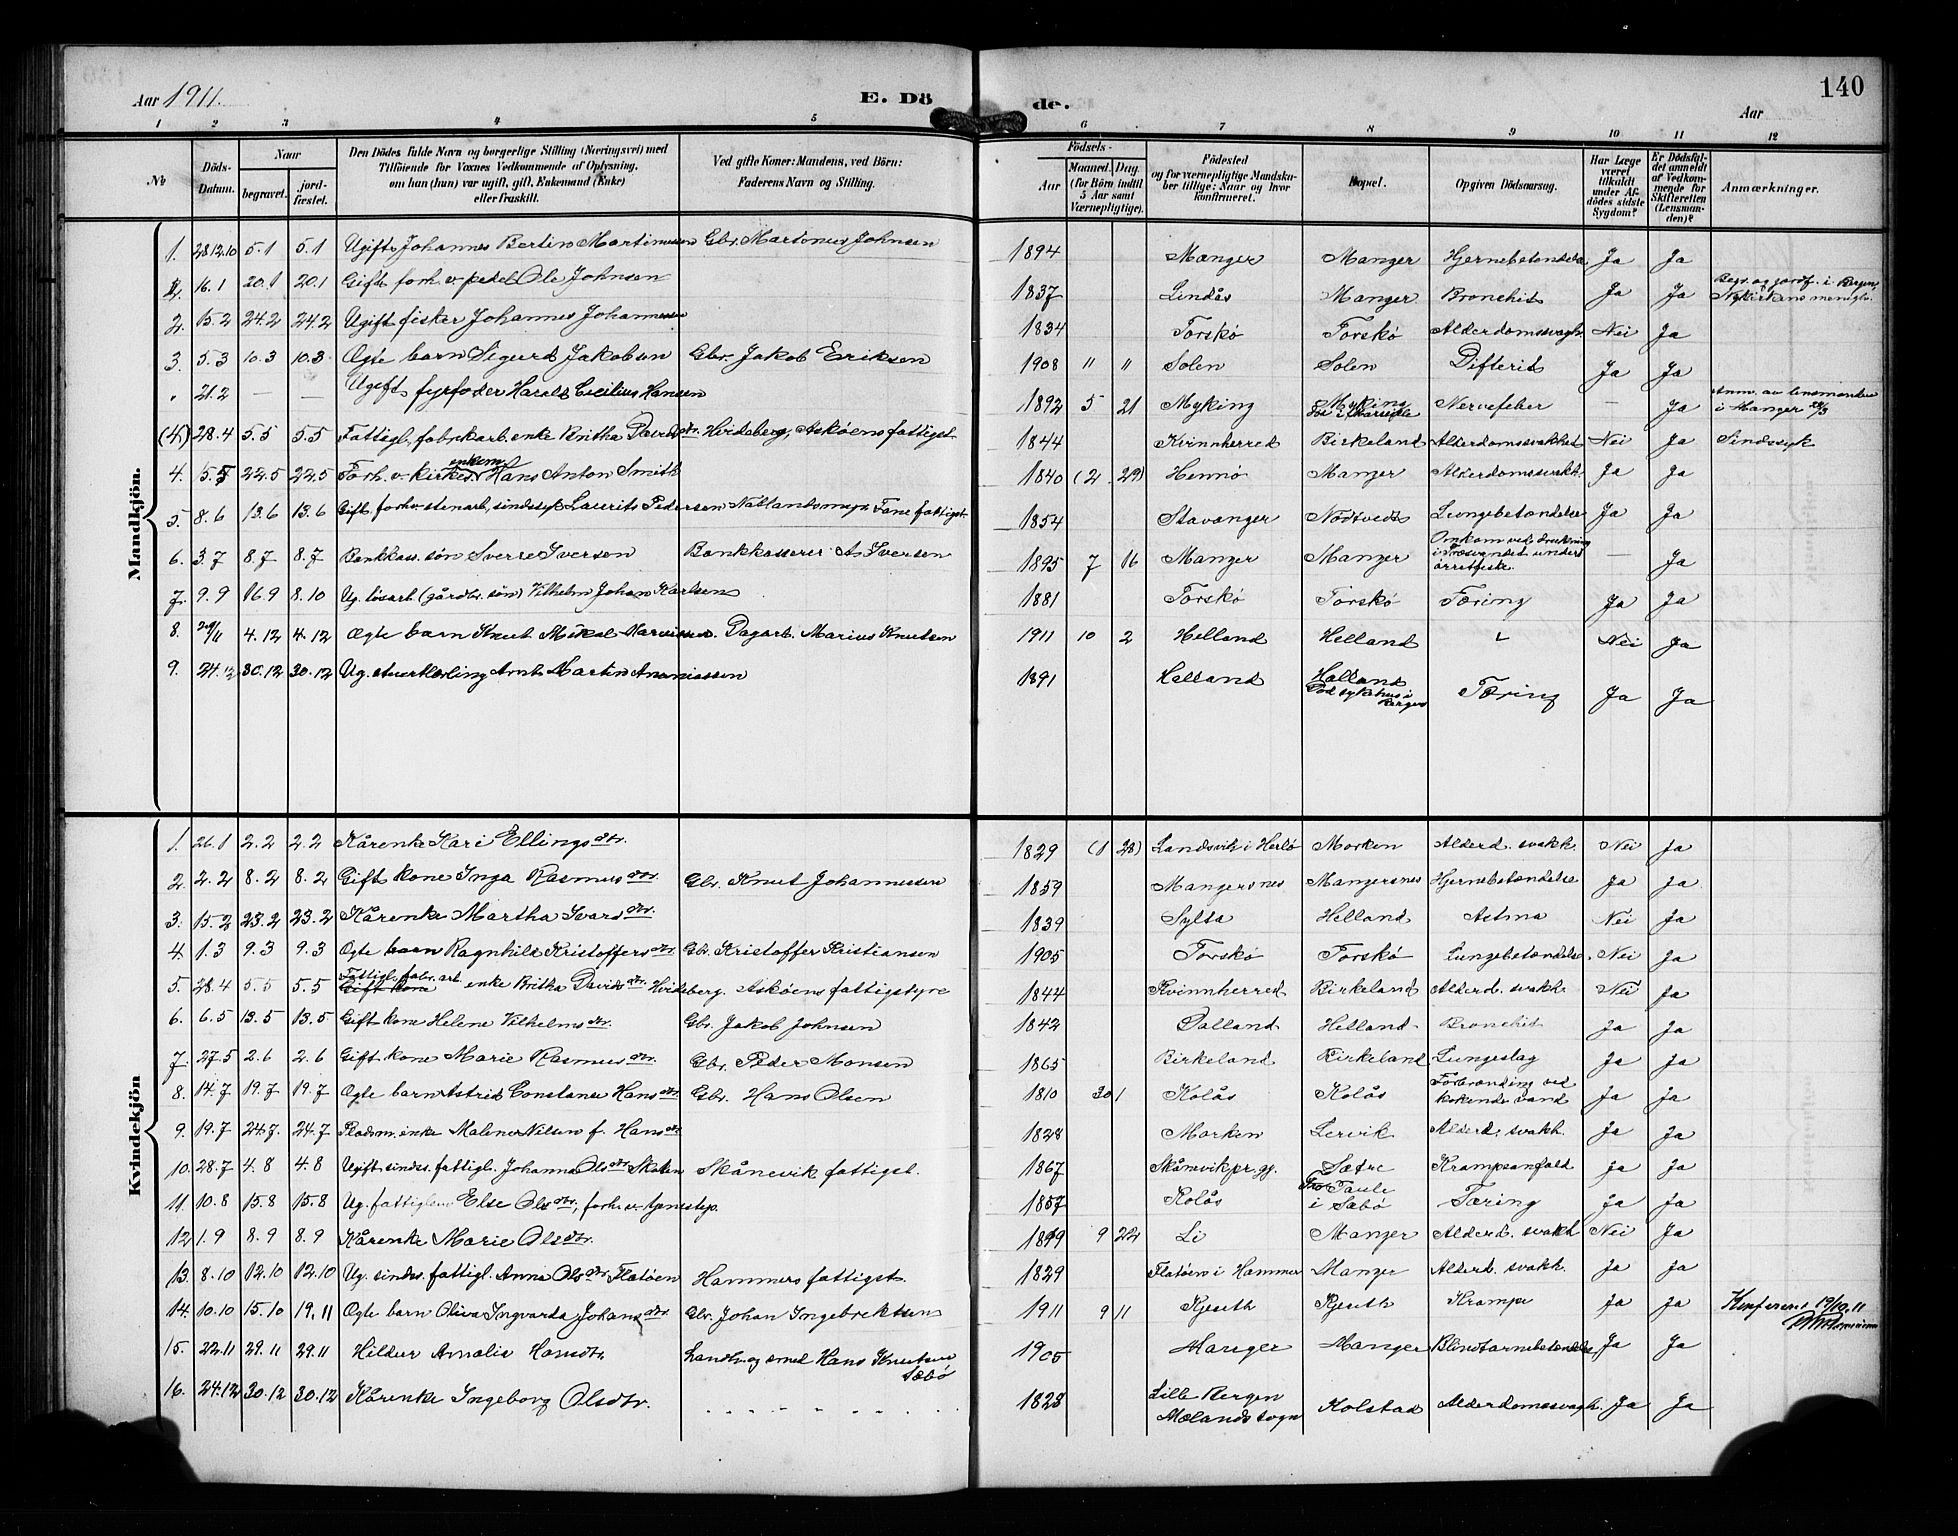 Aar 1911. E. Dö de. Aar 140
1 2 3 4 5 6 7 8 9 10 11 12
No Döds-Datum. Naar begravet. jord-fæstet. Den Dödes fulde Navn og borgerlige Stilling (Næringsvei) med Tilföiende for Voxnes Vedkommende af Oplysning, om han (hun) var ugift, gift, Enkemand (Enke) eller fraskilt. Ved gifte Koner: Mandens, ved Börn: Faderens Navn og Stilling. Födsels- Aar Maaned. Dag. (for Börn indtil 5 Aar samt Værnepligtige). Födested og for værnepligtige Mandska-ber tillige: Naar og hvor konfirmeret. Bopæl. Opgiven Dödsaarsag. Har Læge været tilkaldt under Af-dödes sidste Sygdom? Er Dödsfal-det anmeldt af Vedkom-mende for Skifteretten (Lensman-den)? Anmærkninger.
Mandkjön.
1. 28.12.10 5.1 5.1 Ugift Johannes Bertin Martinussen Gbr. Martinus Johnsen 1894 Manger Manger Hjernebetændelse Ja Ja
16.1 20.1 20.1 Gift forh. v. pedel Ole Johnsen 1837 Lindås Manger Bronchit Ja Ja Begr. og jordf. i Bergen, Nykirkens menigh.
2. 15.2 24.2 24.2 Ugift fisker Johannes Johannessen 1834 Torskø Torskø Alderdomssvagh. Nei Ja
3. 5.3 10.3 10.3 Ægte barn Sigurd Jakobsen Gbr. Jakob Eriksen 1908 " " Solen Solen Difterit Ja Ja
" 21.2 — — Ugift fyrbøder Harald Cecilius Hansen 1892 5 21 Myking Myking Nervefeber — Ja Anm. av lensmanden i Manger
(4) 28.4 5.5 5.5 Fattigl. fabrikarb. enke Britha Davidsdtr. Heideberg, Askøens fattigst. 1844 Kvinnherred Birkeland Alderdomssvakhet Nei Ja Sindssyk
4. 15.5 22.5 22.5 Forh. v. kirkes. enkem. Hans Anton Smith 1840 (2 29) Hennø Manger Alderdomssvakh. Ja Ja
5. 8.6 13.6 13.6 Gift forhv. stenarb., sindssyk Laurits Pedersen Natlandsmyr Fane fattigst. 1854 Stavanger Nødtvedt Lungebetændelse Ja Ja
6. 3.7 8.7 8.7 Bankkass. søn Sverre Iversen Bankkasserer A. Iversen 1895 7 16 Manger Manger Omkom ved drukning i Træsvandet under ørretfiske. — Ja
7. 9.9 16.9 8.10 Ug. løsarb. (gårdbr. søn) Vilhelm Johan Karlsen 1881 Torskø Torskø Tæring Ja Ja
8. 29/11 4.12 4.12 Ægte barn Knut Mikal Mariussen Dagarb. Marius Knutsen 1911 10 2 Helland Helland Nei Ja
9. 24.12 30.12 30.12 Ug. stuertlærling Arnt Martin Ananiassen 1891 Helland Helland Død sykehus i Bergen Tæring Ja Ja
Kvindekjön
1. 26.1 2.2 2.2 Kårenke Kari Ellingsdtr. 1829 (1 28) Landsvik i Herlø Morken Alderd. svakh. Nei Ja
2. 2.2 8.2 8.2 Gift kone Inga Rasmusdtr. Gbr. Knut Johannessen 1859 Mangersnes Mangersnes Hjernebetændelse Ja Ja
3. 15.2 23.2 23.2 Kårenke Martha Ivarsdtr. 1839 Sylta Helland Astma Nei Ja
4. 1.3 9.3 9.3 Ægte barn Ragnhild Kristoffersdtr. Gbr. Kristoffer Kristiansen 1905 Torskø Torskø Lungebetændelse. Nei Ja
5. 28.4 5.5 5.5 Gift kone Fattigl. fabr. arb. enke Britha Davidsdtr. Heideberg. Askøens fattigstyre 1844 Kvinnherred Birkeland Alderd. svakh. Nei Ja
6. 6.5 13.5 13.5 Gift kone Helene Vilhelmsdtr. Gbr. Jakob Johnsen 1842 Dalland Helland Bronchit Ja Ja
7. 27.5 2.6 2.6 Gift kone Marie Rasmusdtr. Gbr. Peder Monsen 1865 Birkeland Birkeland Lungeslag Ja Ja
8. 14.7 19.7 19.7 Ægte barn Astrid Constance Hansdtr. Gbr. Hans Olsen 1810 30 1 Kolås Kolås Forbrænding ved kokende vand Ja Ja
9. 19.7 24.7. 24.7 Pladsm. enke Malene Nilsen f. Hansdtr. 1828 Morken Lervik Alderd. svakh. Ja Ja
10. 28.7 4.8 4.8 Ugift sindss. fattigl. Johanna Olsdtr. Skaten Skånevik fattigst. 1867 Skånevik pr.gj. Sætre Krampeanfald Ja Ja
11. 10.8 15.8 15.8 Ug. fattiglem Else Olsdtr., forhv. tjenestep. 1857 Kolås Toska i Sæbø Tæring Ja Ja
12 1.9 8.9 8.9 Kårenke Marie Olsdtr. 1829 9 22 Li Manger Alderd. svakh. Nei Ja
13. 8.10 12.10 12.10 Ug. sindss. fattigl. Anna Olsdtr. Flatøen Hammers fattigst. 1829 Flatøen i Hammer Manger Alderd. svakh. Ja Ja
14. 10.10 15.10 19.11 Ægte barn Oliva Ingvarda Johansdtr. Gbr. Johan Ingebriktsen 1911 9 11 Kjeseth Kjeseth Krampe Ja Ja 19/10.11
15. 22.11 29.11 29.11 Hildur Amalie Hansdtr. Landh. og smed Hans Knutsen Sæbø 1905 Manger Manger Blindtarmbetændelse Ja Ja
16. 24.12 30.12 30.12 Kårenke Ingeborg Olsdtr. " " " " " " " 1828 Lille Bergen Mælands sogn Kolstad Alderdomssvagh. Ja Ja